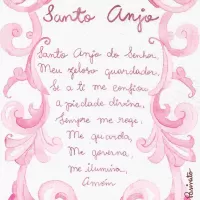 Santo Anjo
Santo Anjo do Senhor,
Meu zeloso guardador,
Se a ti me confiou
a piedade divina,
Sempre me rege
Me guarda,
Me governa,
me ilumina,
Amém